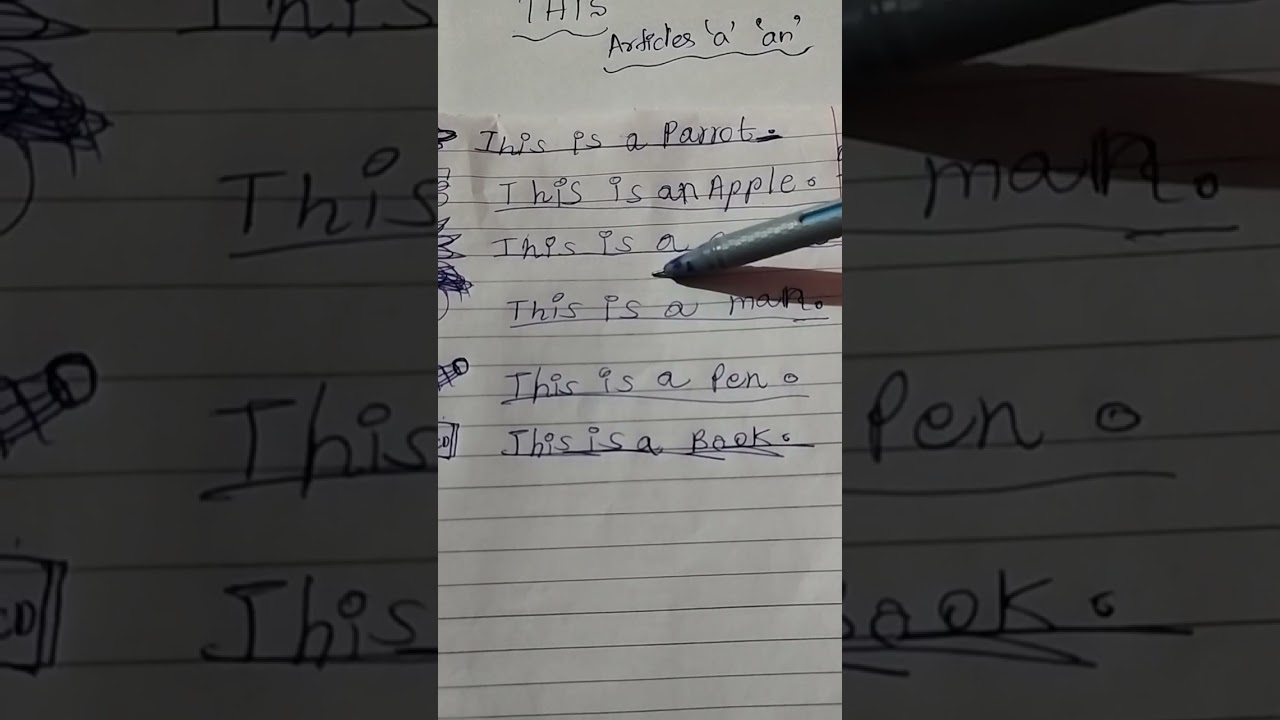 THIS
Articles 'a' 'an'
This is a Parrot.
This is an Apple.
This is a
This is a man.
This is a Pen.
This is a Book.